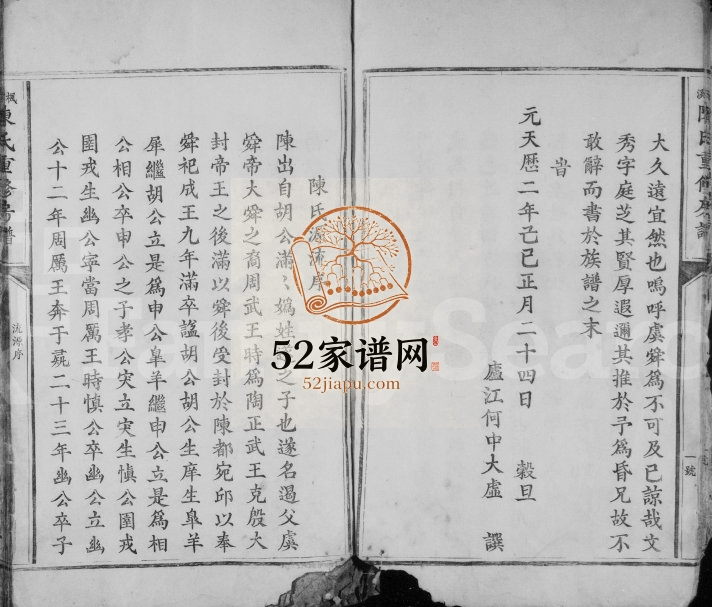 大久遠宜然也嗚呼虞舜爲不可及已諒哉文
秀字庭芝其賢厚遐邇其推於予爲昏兄故不
敢辭而書於族譜之末
旹
元天歷二年己巳正月二十四日 穀旦
廬江何中大虛 譔
一號
陳氏源流序
陳出自胡公滿滿嬀姓之子也遂名遏父虞
舜帝大舜之裔周武王時爲陶正武王克殷大
封帝王之後滿以舜後受封於陳都宛邱以奉
舜祀成王九年滿卒諡胡公胡公生犀生臯羊
犀繼胡公立是爲申公臯羊繼申公立是爲相
公相公卒申公之子孝公突立突生愼公圉戎
圉戎生幽公寧當周厲王時慎公卒幽公立幽
公十二年周厲王奔于彘二十三年幽公卒子
陳氏重修房譜
流源序
52家谱网
52jiapu.com